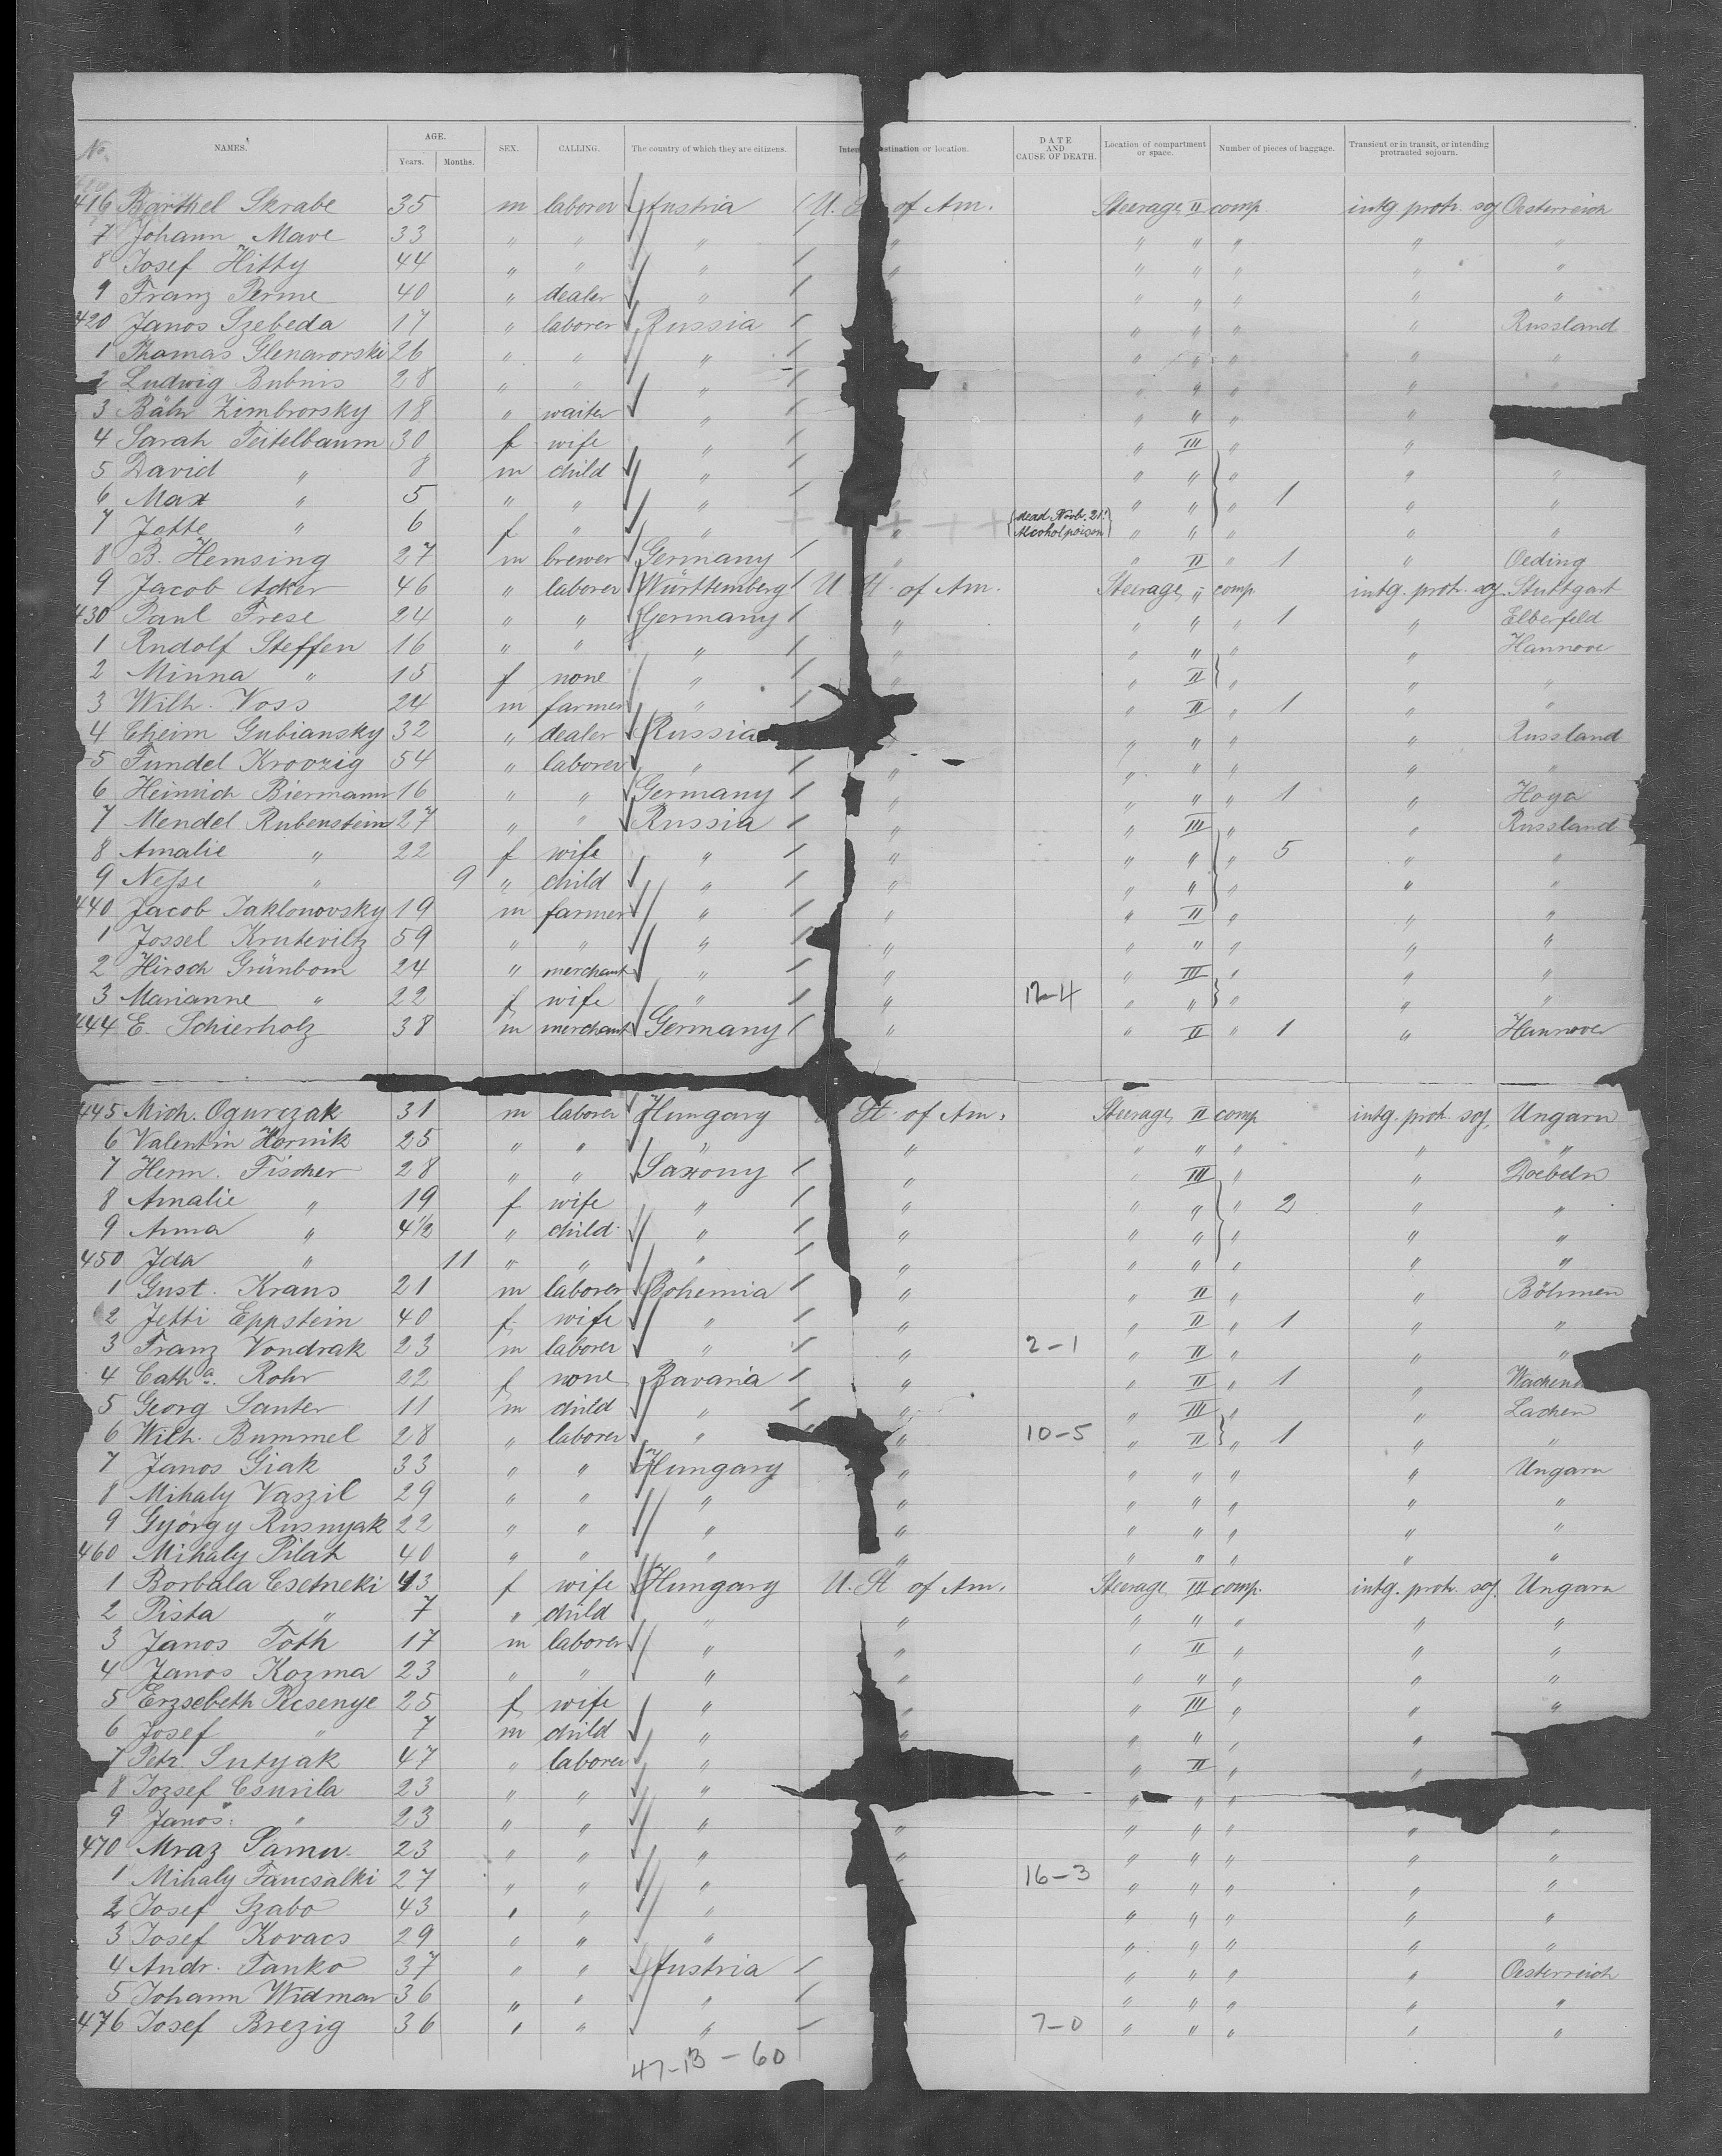 No. NAMES. AGE. Years. Months. SEX. CALLING. The country of which they are citizens. Inten estination or location. DATE AND CAUSE OF DEATH. Location of compartment or space. Number of pieces of baggage. Transient or in transit, or intending protracted sojourn.
416 Barthel Skrabe 35 m laborer Austria U. of Am. Steerage II comp. intg protr. soj Oesterreich
7 Johann Mave 33 " " " " " " " " "
8 Josef Hitty 44 " " " " " " " " "
9 Franz Perme 40 " dealer " " " " " "
420 Janos Szebeda 17 " laborer Russia " " " " Russland
1 Thomas Glenarorski 26 " " " " " " " "
2 Ludwig Bubnis 28 " " " " " " " "
3 Bähr Zimbrorsky 18 " waiter " " " " "
4 Sarah Teitelbaum 30 f wife " " III " "
5 David " 8 m child " " " " " "
6 Max " 5 " " " " " " " 1 " "
7 Jette " 6 f " " " dead Novb. 21. Alcohol poison " " " " "
8 B. Hemsing 27 m brewer Germany " " II " 1 " Oeding
9 Jacob Acker 46 " laborer Württemberg U St. of Am. Steerage " comp. intg. protr. soj. Stuttgart
430 Paul Frese 24 " " Germany " " " " 1 " Elberfeld
1 Rudolf Steffen 16 " " " " " " " " Hannover
2 Minna " 15 f none " " " II " " "
3 Wilh. Voss 24 m farmer " " II " 1 " "
4 Cheim Gubiansky 32 " dealer Russia " " " " Russland
5 Fundel Krovzig 54 " laborer " " " " " " "
6 Heinrich Biermann 16 " " Germany " " " " 1 " Hoya
7 Mendel Rubenstein 27 " " Russia " " III " " Russland
8 Amalie " 22 f wife " " " " " 5 " "
9 Nesse " 9 " child " " " " " " "
440 Jacob Jaklonovsky 19 m farmer " " " II " " "
1 Jossel Kruteviltz 59 " " " " " " " " "
2 Hirsch Grünbom 24 " merchant " " " III " " "
3 Marianne " 22 f wife " " 12-4 " " " " "
444 E. Schierholz 38 m merchant Germany " " II " 1 " Hannover
445 Mich. Ogurczak 31 m laborer Hungary St. of Am. Steerage II comp intg. protr. soj. Ungarn
6 Valentin Hornik 25 " " " " " " " " "
7 Herm. Fischer 28 " " Saxony " " III " " Doebeln
8 Amalie " 19 f wife " " " " " 2 " "
9 Anna " 4½ " child " " " " " " "
450 Ida " 11 " " " " " " " " "
1 Gust. Kraus 21 m laborer Bohemia " " II " " Böhmen
2 Jetti Eppstein 40 f wife " " " II " 1 " "
3 Franz Vondrak 23 m laborer " " 2-1 " II " " "
4 Catha. Rohr 22 f none Bavaria " " II " 1 "
5 Georg Santer 11 m child " " " III " " Lachen
6 Wilh. Bummel 28 " laborer " " 10-5 " II " 1 " "
7 Janos Giak 33 " " Hungary " " " " " Ungarn
8 Mihaly Vaszil 29 " " " " " " " " "
9 György Rusnyak 22 " " " " " " " " "
460 Mihaly Pilat 40 " " " " " " " " "
1 Borbala Csetneki 43 f wife Hungary U. St of Am. Steerage III comp. intg. protr. soj. Ungarn
2 Pista " 7 " child " " " " " " "
3 Janos Toth 17 m laborer " " " II " " "
4 Janos Kozma 23 " " " " " " " " "
5 Erzsebeth Resenye 25 f wife " " " III " " "
6 Josef " 7 m child " " " " " "
7 Petr. Sutyak 47 " laborer " " II " "
8 Jozsef Csurila 23 " " " " " "
9 Janos " 23 " " " " " " " " "
470 Mraz Samu. 23 " " " " " " " " "
1 Mihaly Fancsalki 27 " " " 16-3 " " " " "
2 Josef Szabo 43 " " " " " " " "
3 Josef Kovacs 29 " " " " " " " "
4 Andr. Tanko 37 " " Austria " " " " Oesterreich
5 Johann Widmar 36 " " " " " " " "
476 Josef Brezig 36 " " " 7-0 " " " " "
47-13-60